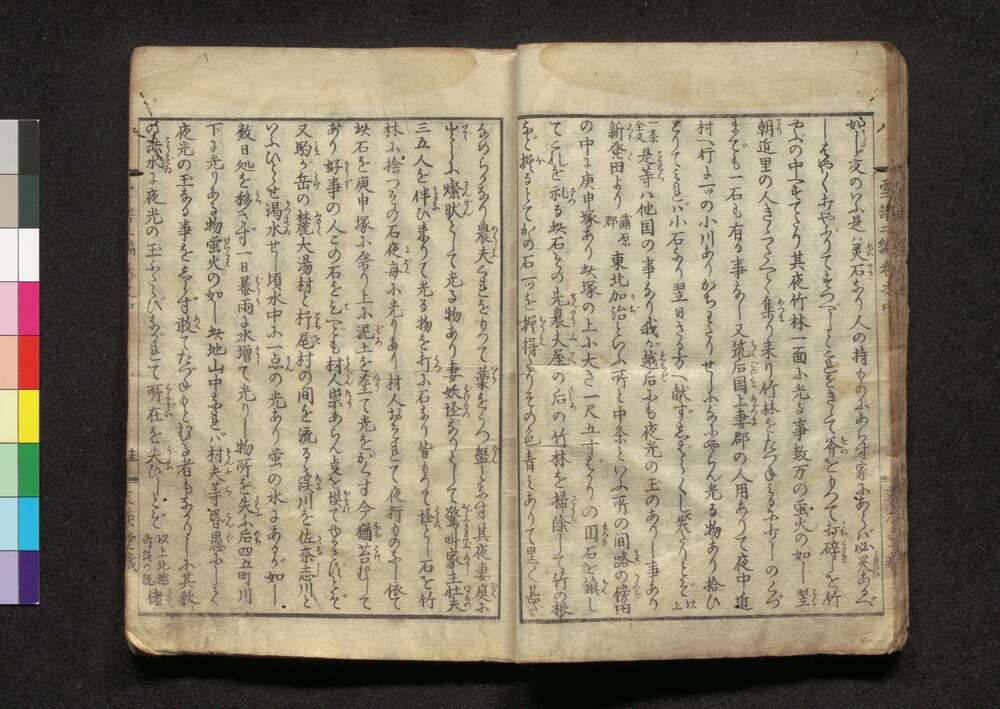 如し友のいふ是ハ灵石なり人の持ものにあらず家にあらバ必災あるべ
しはやく打やぶりてすつべしとをききて斧をもつて打碎しを竹
やぶの中へすてたり其夜竹林一面に光る事数万の螢火の如し翌
朝近里の人きたつて集り来り竹林をたづねみるに少しのくづ
までも一石も有る事なし又筑后国上妻郡の人用ありて夜中近
村へ行に一ツの小川ありかちわたりせしになにやらん光る物あり拾ひ
とりてみれバ小石なり翌日さる方へ献ずしばらくして失たりとぞ以上
一条全文是等ハ他国の事なり我が越后にも夜光の玉のありし事あり
新発田より蒲原郡東北加治といふ所と中条といふ所の間路の傍田
の中に庚申塚あり此塚の上に大さ一尺五寸ばかりの円石を鎮し
てこれを礼る此石その先農夫屋の后の竹林を掃除して竹の根
など掘るとてかの石一ツを掘得たりその色青みありて黒く甚だ
なめらかなり農夫これをもつて藁をうつ盤となす其夜妻庭に
出しに燦然として光る物あり妻妖怪なりとして驚叫家主壮夫
三五人を伴ひ来りて光る物を打に石なり皆もつて怪とし石を竹
林に捨つその石夜毎に光りあり村人おそれて夜行ものなし依て
此石を庚申塚に祭り上に泥土を塗て光をかくす今猶苔むして
あり好事の人この石をこへども村人祟あらん㕝を惧てゆるさずとぞ
又駒が岳の麓大湯村と栃尾村の間を流るゝ渓川を佐奈志川と
いふひとせ渇水せし頃水中に一点の光あり螢の水にあるが如し
数日処を移さず一日暴雨に水増て光りし物所を失ふ后四五町川
下に光りある物螢火の如し此地山中なれバ村夫等昏愚にして
夜光の玉なる事をしらず敢てたづねもとむる者もなかりしに其秋
の洪水に夜光の玉ふたゝびながれて所在を失ひしとぞ以上北越奇談の説